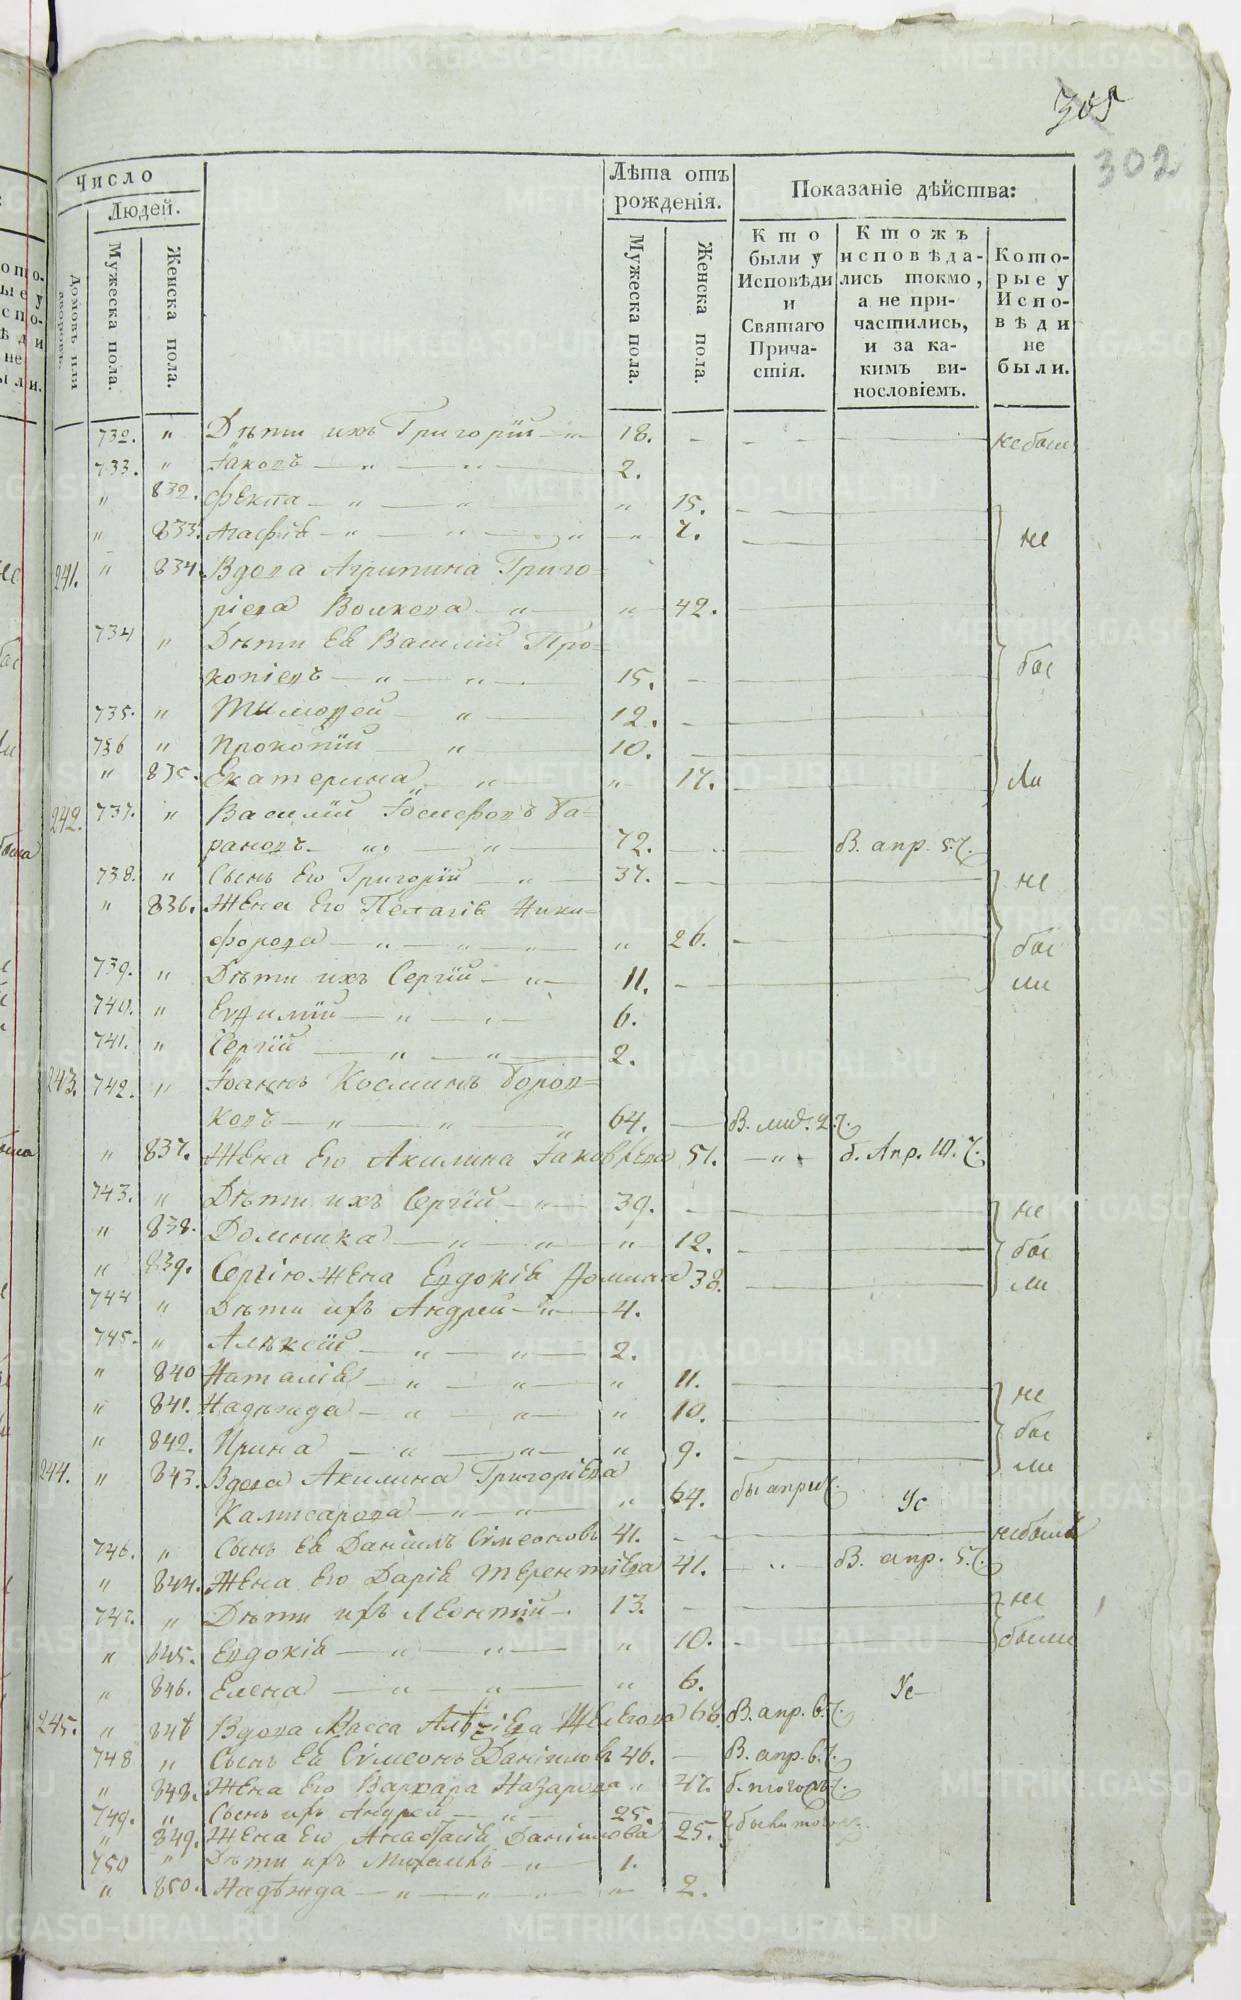 305
302
Число
Людей.
Домовъ или дворовъ.
Мужеска пола.
Женска пола.
Лѣта отъ рожденія.
Мужеска пола.
Женска пола.
Показаніе дѣйства:
Кто были у Исповѣди и Святаго Причастія.
Ктожъ исповѣдались токмо, а не причастились, и за какимъ винословіемъ.
Которые у Исповѣди не были.
732. " Дѣти ихъ Григорій — " — 18. небыли
733. " Іаковъ — " — " 2.
" 832. Фекла — " — " " 15.
" 833. Агафія — " — " — " 7. не
241. " 834. Вдова Агрипина Григо=
ріева Волкова — " — " 42.
734 " Дѣти Ея Василій Про=
копіевъ — " — " — 15. бы
735. " Тимофей — " — 12.
736 " Прокопій — " — 10.
" 835. Екатерина — " — " 17. ли
242. 737. " Василій Іосифовъ Ба=
рановъ — " — " — 72. В. апр. 5.
738. " Сынъ Его Григорій — " — 37. не
" 836. Жена Его Пелагія Ники=
форова — " — " — " " 26. бы
739. " Дѣти ихъ Сергій — " — 11. ли
740. " Евфимій — " — " 6.
741. " Сергій — " — " — 2.
243. 742. " Іоаннъ Косминъ Боров=
ковъ — " — " — " 64.
" 837. Жена Его Акилина Іаковлева 51. — " — Апр. 10.
743. " Дѣти ихъ Сергій — " — 39. не
" 838. Домника — " — " — " 12. бы
" 839. Сергію Жена Евдокія Фомина 38. ли
744 " Дѣти ихъ Андрей — " — 4.
745. " Алѣксій — " — " — 2.
" 840 Наталія — " — " — " 11. не
" 841. Надѣжда — " — " — " 10. бы
" 842. Ирина — " — " — " 9. ли
244. " 843. Вдова Акилина Григоріева
Камисарова — " — " — " 64. Ус
746. " Сынъ Ея Даніилъ Симеоновъ 41. небыли
" 844. Жена Его Дарія Терентіева 41. " В. апр. 5.
747. " Дѣти ихъ Леонтій — 13. не
" 845. Евдокія — " — " — " 10. были
" 846. Елена — " — " — " 6. Ус
245. " 847 Вдова 68. В. апр. 6.
748 " Сынъ Ея Симеонъ Даніиловъ 46. — В. апр. 6.
" 848. Жена Его Варвара Назарова " 47.
749. " Сынъ ихъ Андрей — " — 25.
" 849. Жена Его Анастасія Даніилова 25.
750 " Дѣти ихъ Михаилъ — " — 1.
" 850. Надѣжда — " — " — " — " 2.
METRIKI.GASO-URAL.RU